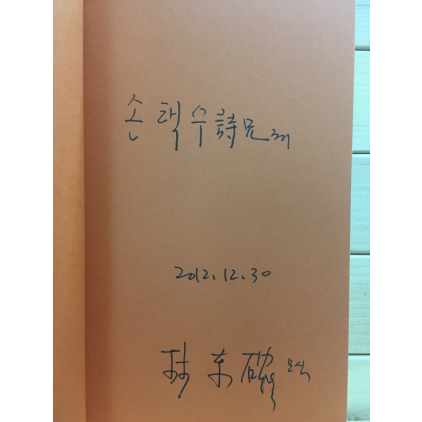 손택수 詩兄께
2012.12.30
林東確 드림